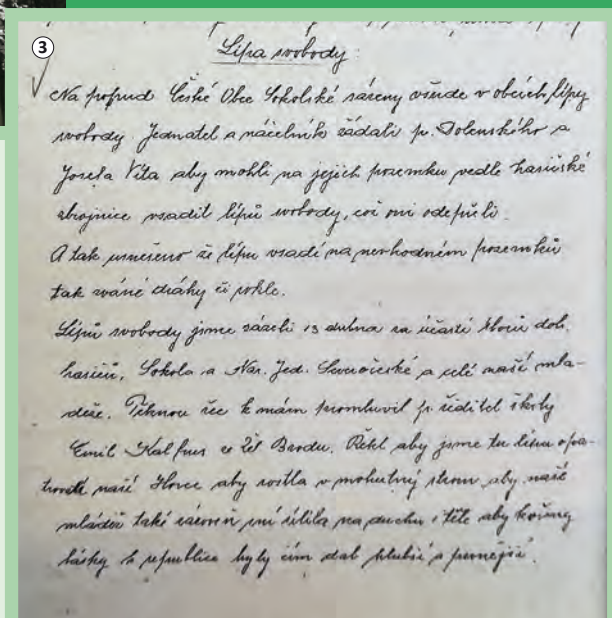 3
Lípa svobody
Na popud České Obce Sokolské sázeny všude v obcích lípy
svobody. Jednatel a náčelník žádali p. Dolenského a
Josefa Víta aby mohli na jejich pozemku vedle hasičské
zbrojnice vsadit lípů svobody, což oni odepřeli.
A tak usneseno že lípu vsadí na nevhodném pozemků
tak zváné dráhy či
Lípů svobody jsme sázeli 13 dubna za účasti sborů dob.
hasičů, Sokola a Nár. Jed. Severočeské a celé naší mla-
deže. Pěknou řeč k nám promluvil p. řiditel školy
Emil Kalfus ze Žel Brodu. Řekl aby jsme tu lípu opa-
trovali naší Horce aby rostla v mohutný strom, aby naše
mládež také zároveň sílila na duchu i těle aby kořeny
lásky k republice byly čím dál hlubší a pevnější.